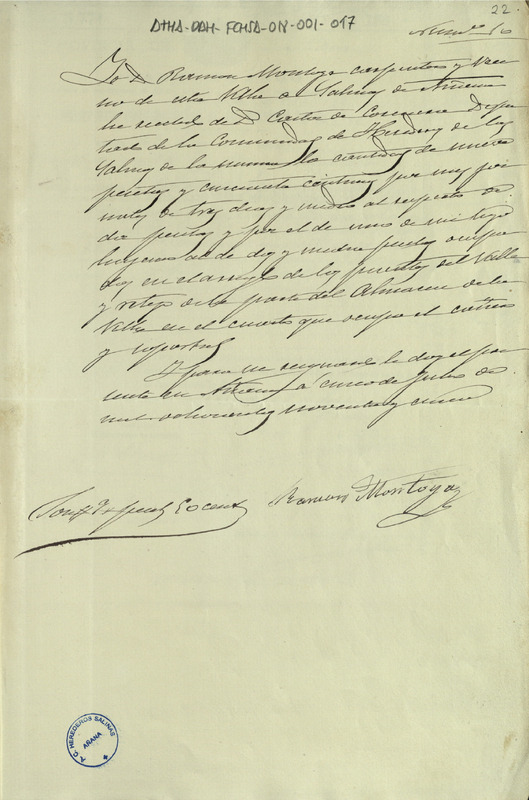 22.
ATHA-DAH-FCHSA-018-001-017
Num.º 16
Yo D. Ramon Montoya carpintero y veci
no de esta Villa de Salinas de Añana
he recibido de D. Carlos de Dipu
tado de la Comunidad de Herederos de las
Salinas de la misma la cantidad de nueve
pesetas y cincuenta centimos por mis jor
nales de tres dias y medio al respecto de
dos pesetas y por el de uno de mi hijo
al de dos y media pesetas ocupa
dos en el arreglo de los puentes del Valle
y retejo de la parte del Almacen de la
Villa en el cuarto que ocupa el
y
Y para su resguardo le doy el pre
sente en Añana a cinco de Julio de
mil ochocientos noventa y cinco
Ramon Montoya
A. G. HEREDEROS SALINAS
AÑANA